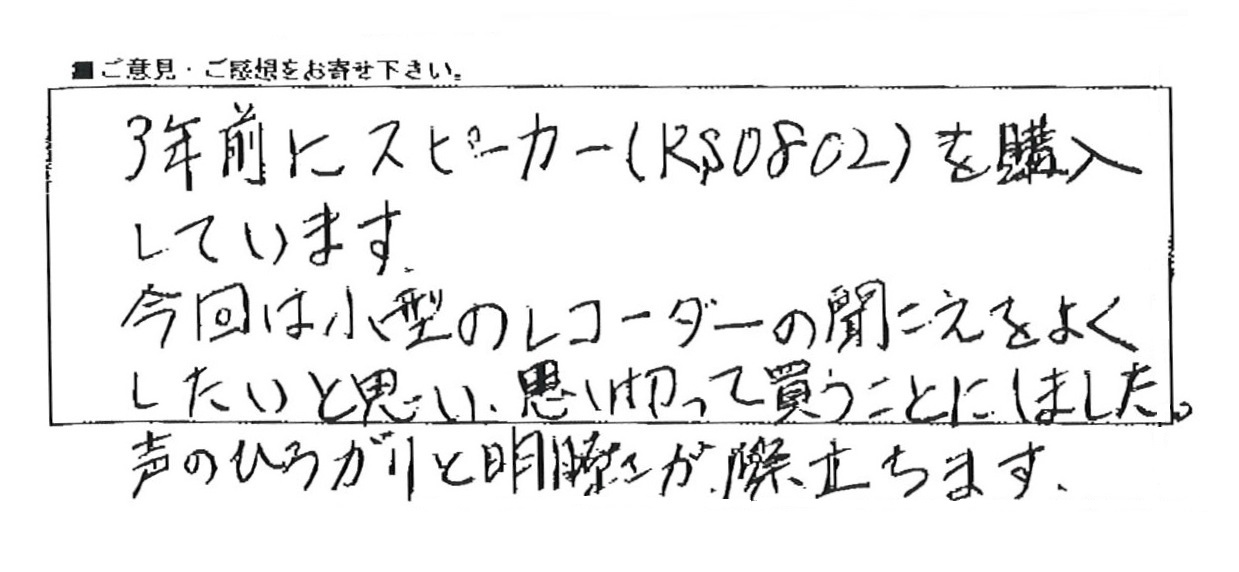 ■ご意見・ご感想をお寄せ下さい。
3年前にスピーカー(RS0802)を購入
しています。
今回は小型のレコーダーの聞こえをよく
したいと思い、思い切って買うことにしました。
声のひろがりと明瞭さが、際立ちます。